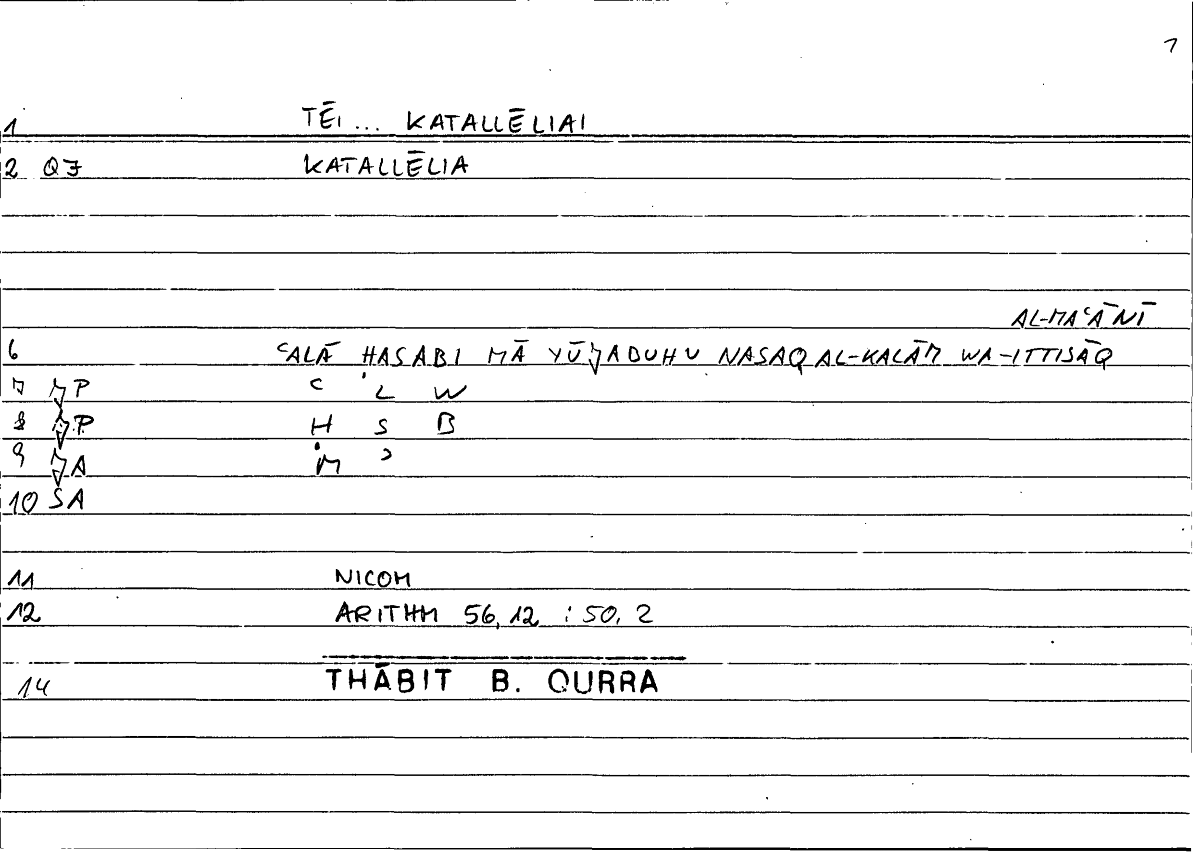 1
1 TĒI ... KATALLĒLIAI
2 QJ KATALLĒLIA
AL-MAʿĀNĪ
6 ʿALĀ ḤASABI MĀ YŪǦADUHU NASAQ AL-KALĀM WA-ITTISĀQ
7 ǦP ʿ L W
8 ǦP Ḥ S B
9 ǦA M ʾ
10 SA
11 NICOM
12 ARITHM 56,12 : 50,2
14 THĀBIT B. QURRA